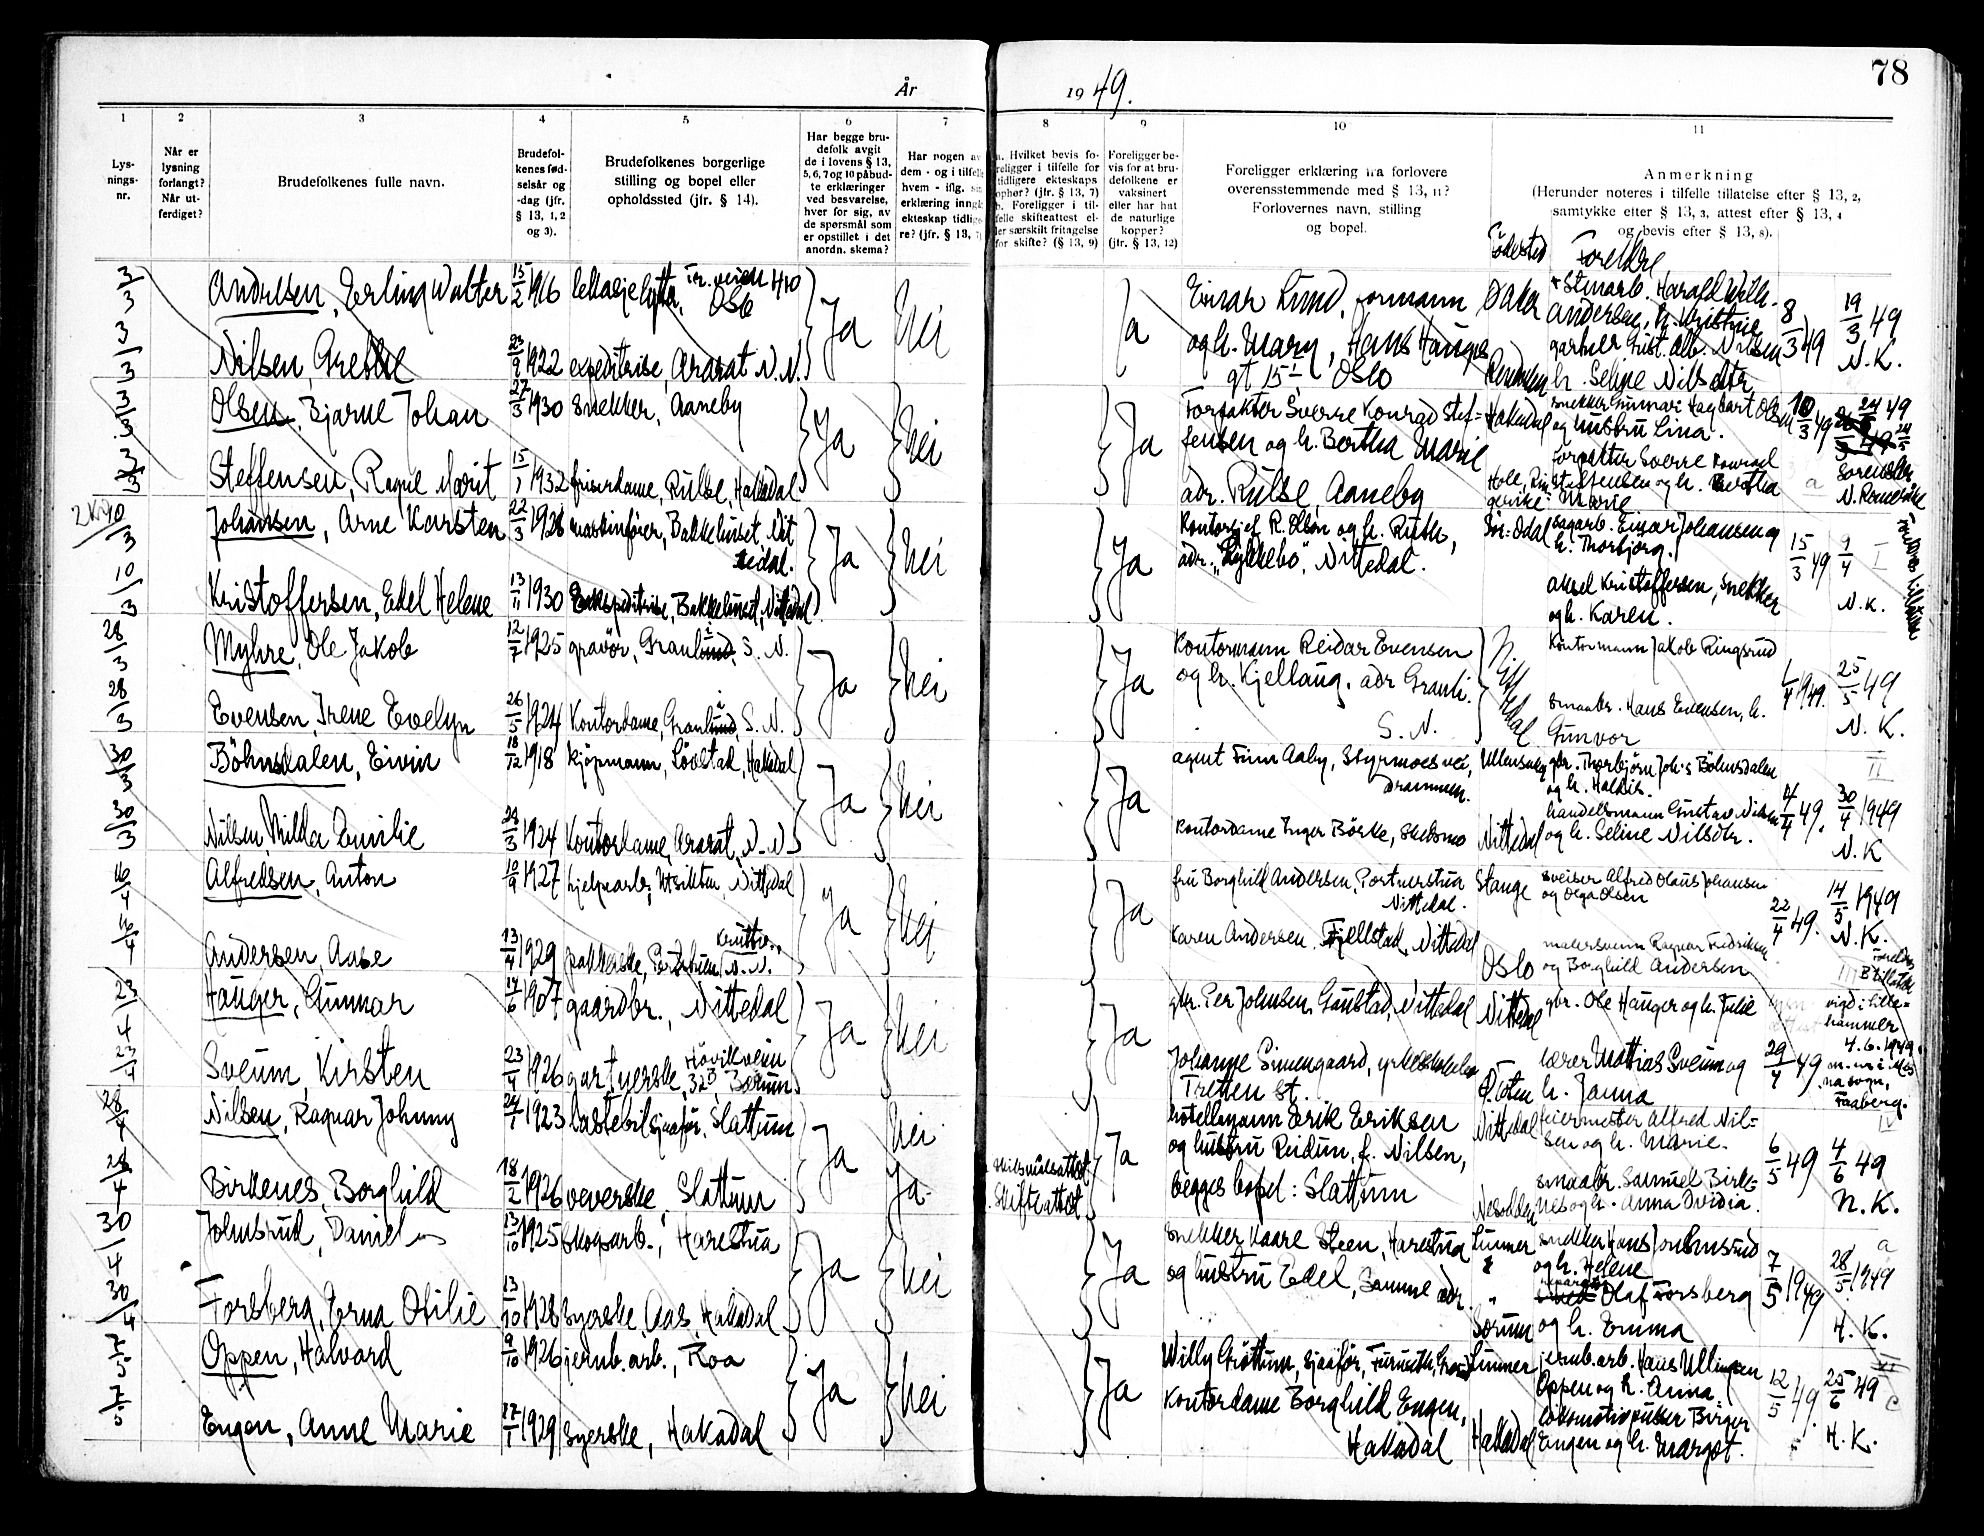 78
År
1949.
1
2
3
4
5
6
7
8
9
10
11
Lys-
nings-
nr.
Når er
lysning
forlangt?
Når ut-
ferdiget?
Brudefolkenes fulle navn.
Brudefol-
kenes fød-
selsår og
-dag (jfr.
§ 13, 1, 2
og 3).
Brudefolkenes borgerlige
stilling og bopel eller
opholdssted (jfr. § 14).
Har begge bru-
defolk avgit
de i lovens § 13,
5, 6, 7 og 10 påbud-
te erklæringer
ved besvarelse,
hver for sig, av
de spørsmål som
er opstillet i det
anordn. skema?
Har nogen av
dem - og i tilfelle
hvem - iflg. sin
erklæring inngå
ekteskap tidlige
re? (jfr. § 13, 7)
a. Hvilket bevis fo-
religger i tilfelle for
tidligere ekteskaps
ophør? (jfr. § 13, 7)
b. Foreligger i til-
felle skifteattest el-
ler særskilt fritagelse
for skifte? (§ 13, 9)
Foreligger be-
vis for at bru-
defolkene er
vaksinert
eller har hat
de naturlige
kopper?
(jfr. § 13, 12)
Foreligger erklæring fra forlovere
overensstemmende med § 13, 11?
Forlovernes navn, stilling
og bopel.
Anmerkning
(Herunder noteres i tilfelle tillatelse efter § 13, 2,
samtykke efter § 13, 3, attest efter § 13, 4
og bevis efter § 13, 8).
Födested
Foreldre
3/3 Andersen, Erling Walter 15/2 1916 Tr. veien 410
Oslo
Ja Nei Ja
Einar Lund, formann Oaker Stenarb. Harald Wilh. 19/3 49
Andersen, h. Kristine 8/3 49
3/3 Nilsen, Grethe 23/9 1922 expeditrise, Ararat N.N.
og h. Mary, Hans Hauges gartner Nilsen N.K.
gt 15 I, Oslo h. Seline Nilsdtr
3/3 Olsen, Bjarne Johan 27/3 1930 snekker, Aaneby
Ja Nei Ja
Forpakter Sverre Konrad Stef= Hakadal snekker Gunnar Hagbart Olsen 10/3 49 24/5 49
fensen og h. Bertha Marie og hustru Lina.
Steffensen, Ragne Marit 15/1 1932 friserdame, Rulse, Hakadal
adr. Rulse, Aaneby Forpakter Sverre Konrad
Steffensen og h. Bertha
Marie
10/3 Johansen, Arne Karsten 22/3 1928 maskinfører, Bakkehuset, Nit
tedal.
Ja Nei Ja
Kontorsjef R. Olsen og h. Ruth, Sör-Odal sagarb. Einar Johansen og
adr. „Lykkebo", Nittedal. h. Thorbjörg. 15/3 49 9/4 I
10/3 Kristoffersen, Edel Helene 13/11 1930 Ekspeditrise, Bakkehuset, Nittedal
Aksel Kristoffersen, snekker N.K.
og h. Karen.
28/3 Myhre, Ole Jakob 12/7 1925 gravör, Granli, S.N.
Ja Nei Ja
Kontormann Reidar Evensen Nittedal Kontormann Jakob Ringsrud
og h. Kjellaug. adr Granli. 1/4 1949. 25/5 49
28/3 Evensen, Irene Evelyn 26/5 1924 Kontordame, Granli, S.N.
S.N. smaabr. Hans Evensen, h. N.K.
Gunvor
30/3 Böhnsdalen, Eivin 18/12 1918 kjöpmann, Lövstad, Hakadal
Ja Nei Ja
agent Finn Aaby, Styrmoesvei, Ullensaker gbr. Thorbjörn Joh's Böhnsdalen II
Drammen. og h. Haldis.
30/3 Nilsen, Milda Emilie 28/3 1924 Kontordame, Ararat, N.N.
Kontordame Inger Börke, Skedsmo Nittedal handelsmann Gustav Nilsen 4/4 49. 30/4 1949
og h. Seline Nilsdtr. N.K
16/4 Alfredsen, Anton 10/9 1927 hjelpearb., Utsikten, Nittedal
Ja Nei Ja
fru Borghild Andersen, Portnerstua Stange sveiser Alfred Olaus Johansen
Nittedal. og Olga Olsen 22/4 49. 14/5 1949
16/4 Andersen, Aase 13/4 1929 pakkerske, N.N.
Karen Andersen. Fjellstad, Nittedal Oslo malersvenn Ragnar Fredriksen N.K.
og Borghild Andersen III
23/4 Hauger, Gunnar 14/6 1907 gaardbr., Nittedal
Ja Nei Ja
gbr. Per Johnsen, Gaustad, Nittedal Nittedal gbr. Ole Hauger og h. Julie vigd i Lille=
hammer
4.6.1949
23/4 Sveum, Kirsten 23/4 1926 gartnerske, Hövikveien
32 B, Bærum
Johanne Simengaard, Tretten st. lærer Mattias Sveum og 29/4 49
h. Janna Faaberg.
28/4 Nilsen, Ragnar Johnny 24/7 1923 lastebilsjaafør, Slattum
Ja Nei Ja
hotellmann Erik Eriksen Nittedal feiermester Alfred Nil=
og hustru Reidun, f. Nilsen, sen og h. Marie. IV
28/4 Birkenes, Borghild 18/2 1926 veverske, Slattum
Ja Skilsmisseattest
Skifteattest
begges bopel: Slattum Nesodden smaabr. Samuel Birke= 6/5 49 4/6 49
nes og h. Anna Ovidia. N.K.
30/4 Johnsrud, Daniel 13/10 1925 skogsarb., Harestua
Ja Nei Ja
snekker Kaare Steen, Harestua Lunner snekker Hans Johnsrud a
og hustru Edel, samme adr. og h. Helene 7/5 1949 28/5 1949
30/4 Forsberg, Erna Otilie 13/10 1928 syerske, Aas, Hakadal
Sørum Olaf Forsberg
og h. Emma H.K.
7/5 Oppen, Halvard 9/10 1926 jernb.arb., Roa
Ja Nei Ja
Willy Gröttum, sjaafør, Furuseth, Lunner jernb.arb. Hans Ullingen
Oppen og h. Anna 12/5 49. 25/6 49 c
7/5 Engen, Anne Marie 27/1 1929 syerske, Hakadal
Kontordame Borghild Engen, lokomotivpusser Birger
Hakadal Hakadal Engen og h. Margot. H.K.